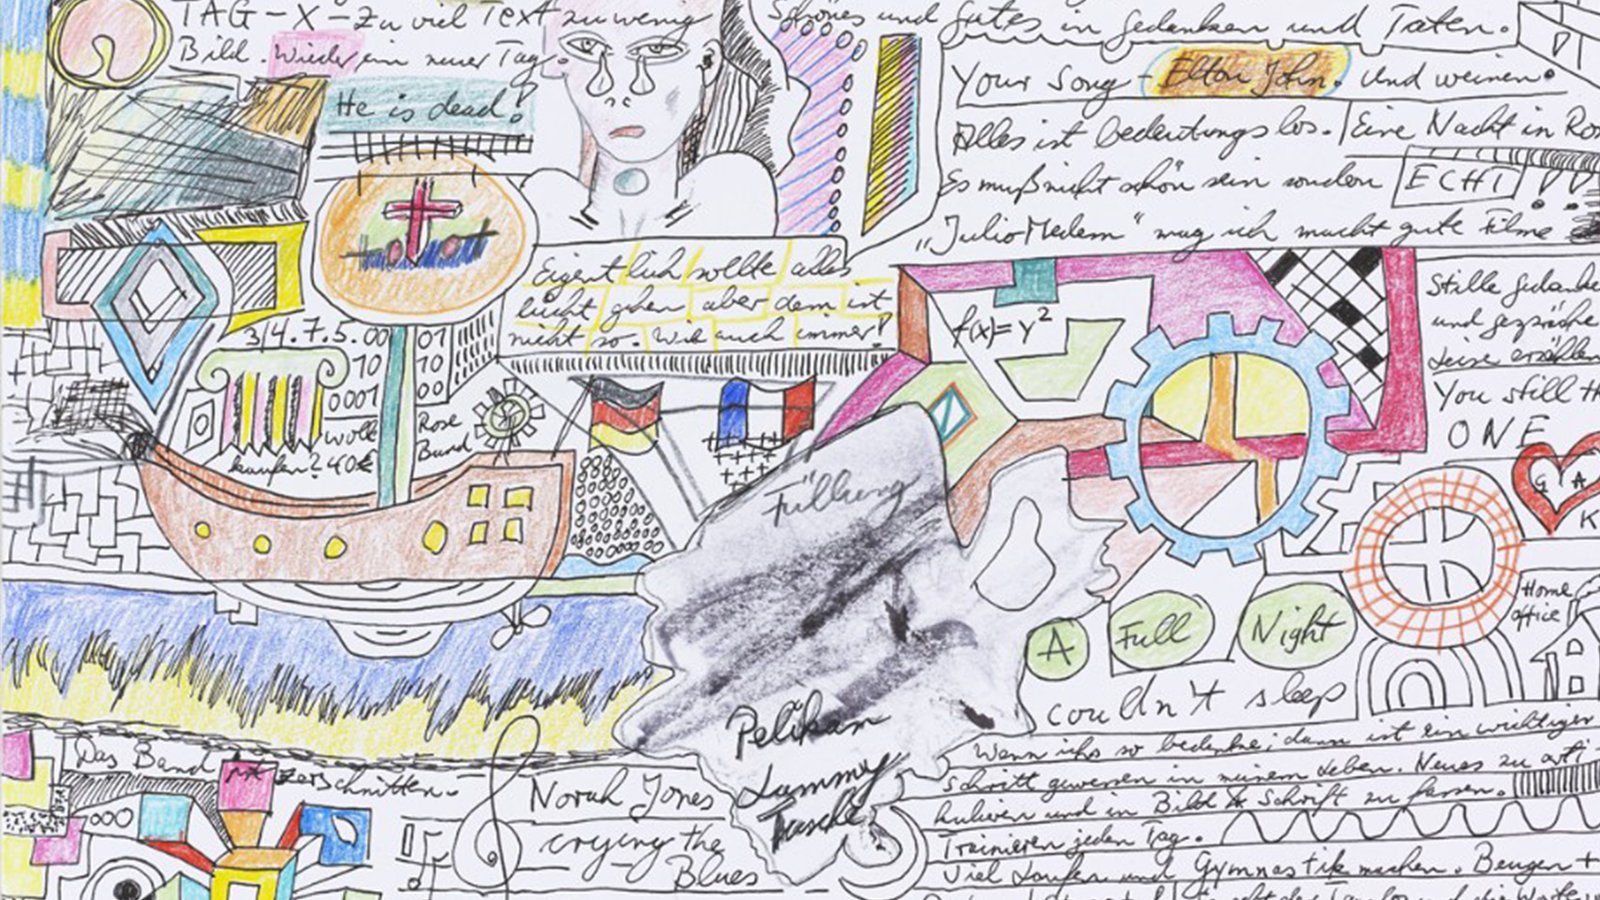 TAG-X-Zu viel Text zu wenig
Bild. Wieder ein neuer Tag.
He is dead!
Schönes und Gutes in Gedanken und Taten.
Your Song - Elton John. Und weinen.
Alles ist bedeutungslos. Eine Nacht in Ro
Es muß nicht schön sein sondern ECHT!
„Julio Medem" mag ich macht gute Filme
Eigentlich sollte alles
leicht gehen aber dem ist
nicht so. Wie auch immer!
3/4.7.5.00
01
10
10
0001
00
wolle
kaufen? 40€
Rose
Bund
f(x)=y²
Stille Gedanken
und Gespräche
Leise erzählen
You still th
ONE
G A
K
Füllung
Pelikan
Lammy
Tusche
A Full Night
couldn't sleep
Home
office
Wenn ichs so bedenke, dann ist ein wichtiger
Schritt gewesen in meinem Leben. Neues zu arti
kulieren und in Bild & Schrift zu fassen.
Trainieren jeden Tag.
Viel Laufen und Gymnastik machen. Beugen +
Das Band ist zerschnitten.
Norah Jones
crying the
Blues